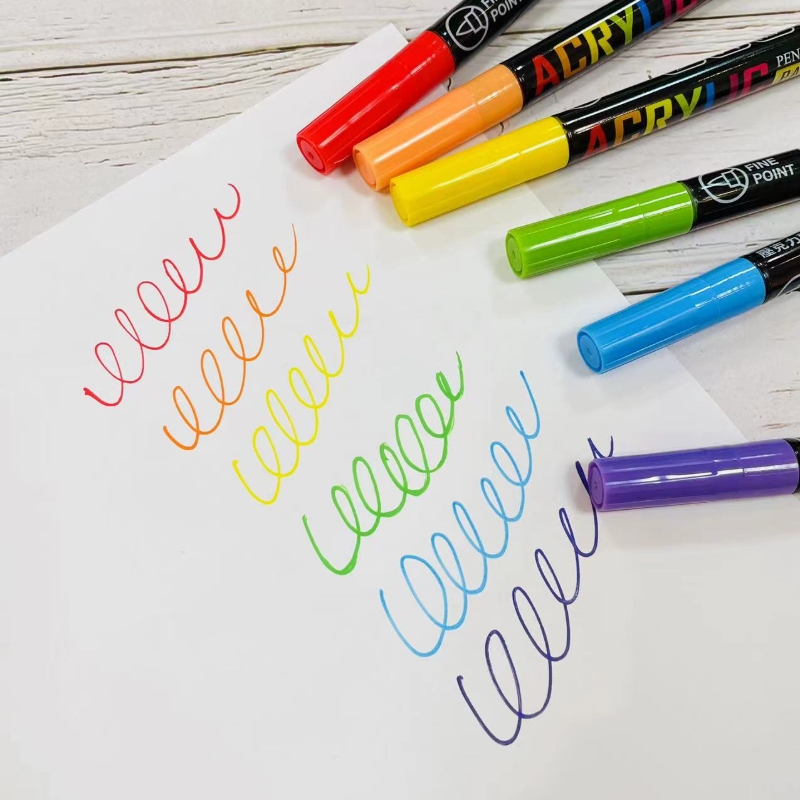 FINE
POINT
ACRYLIC
ACRYLIC
PEN
FINE
POINT